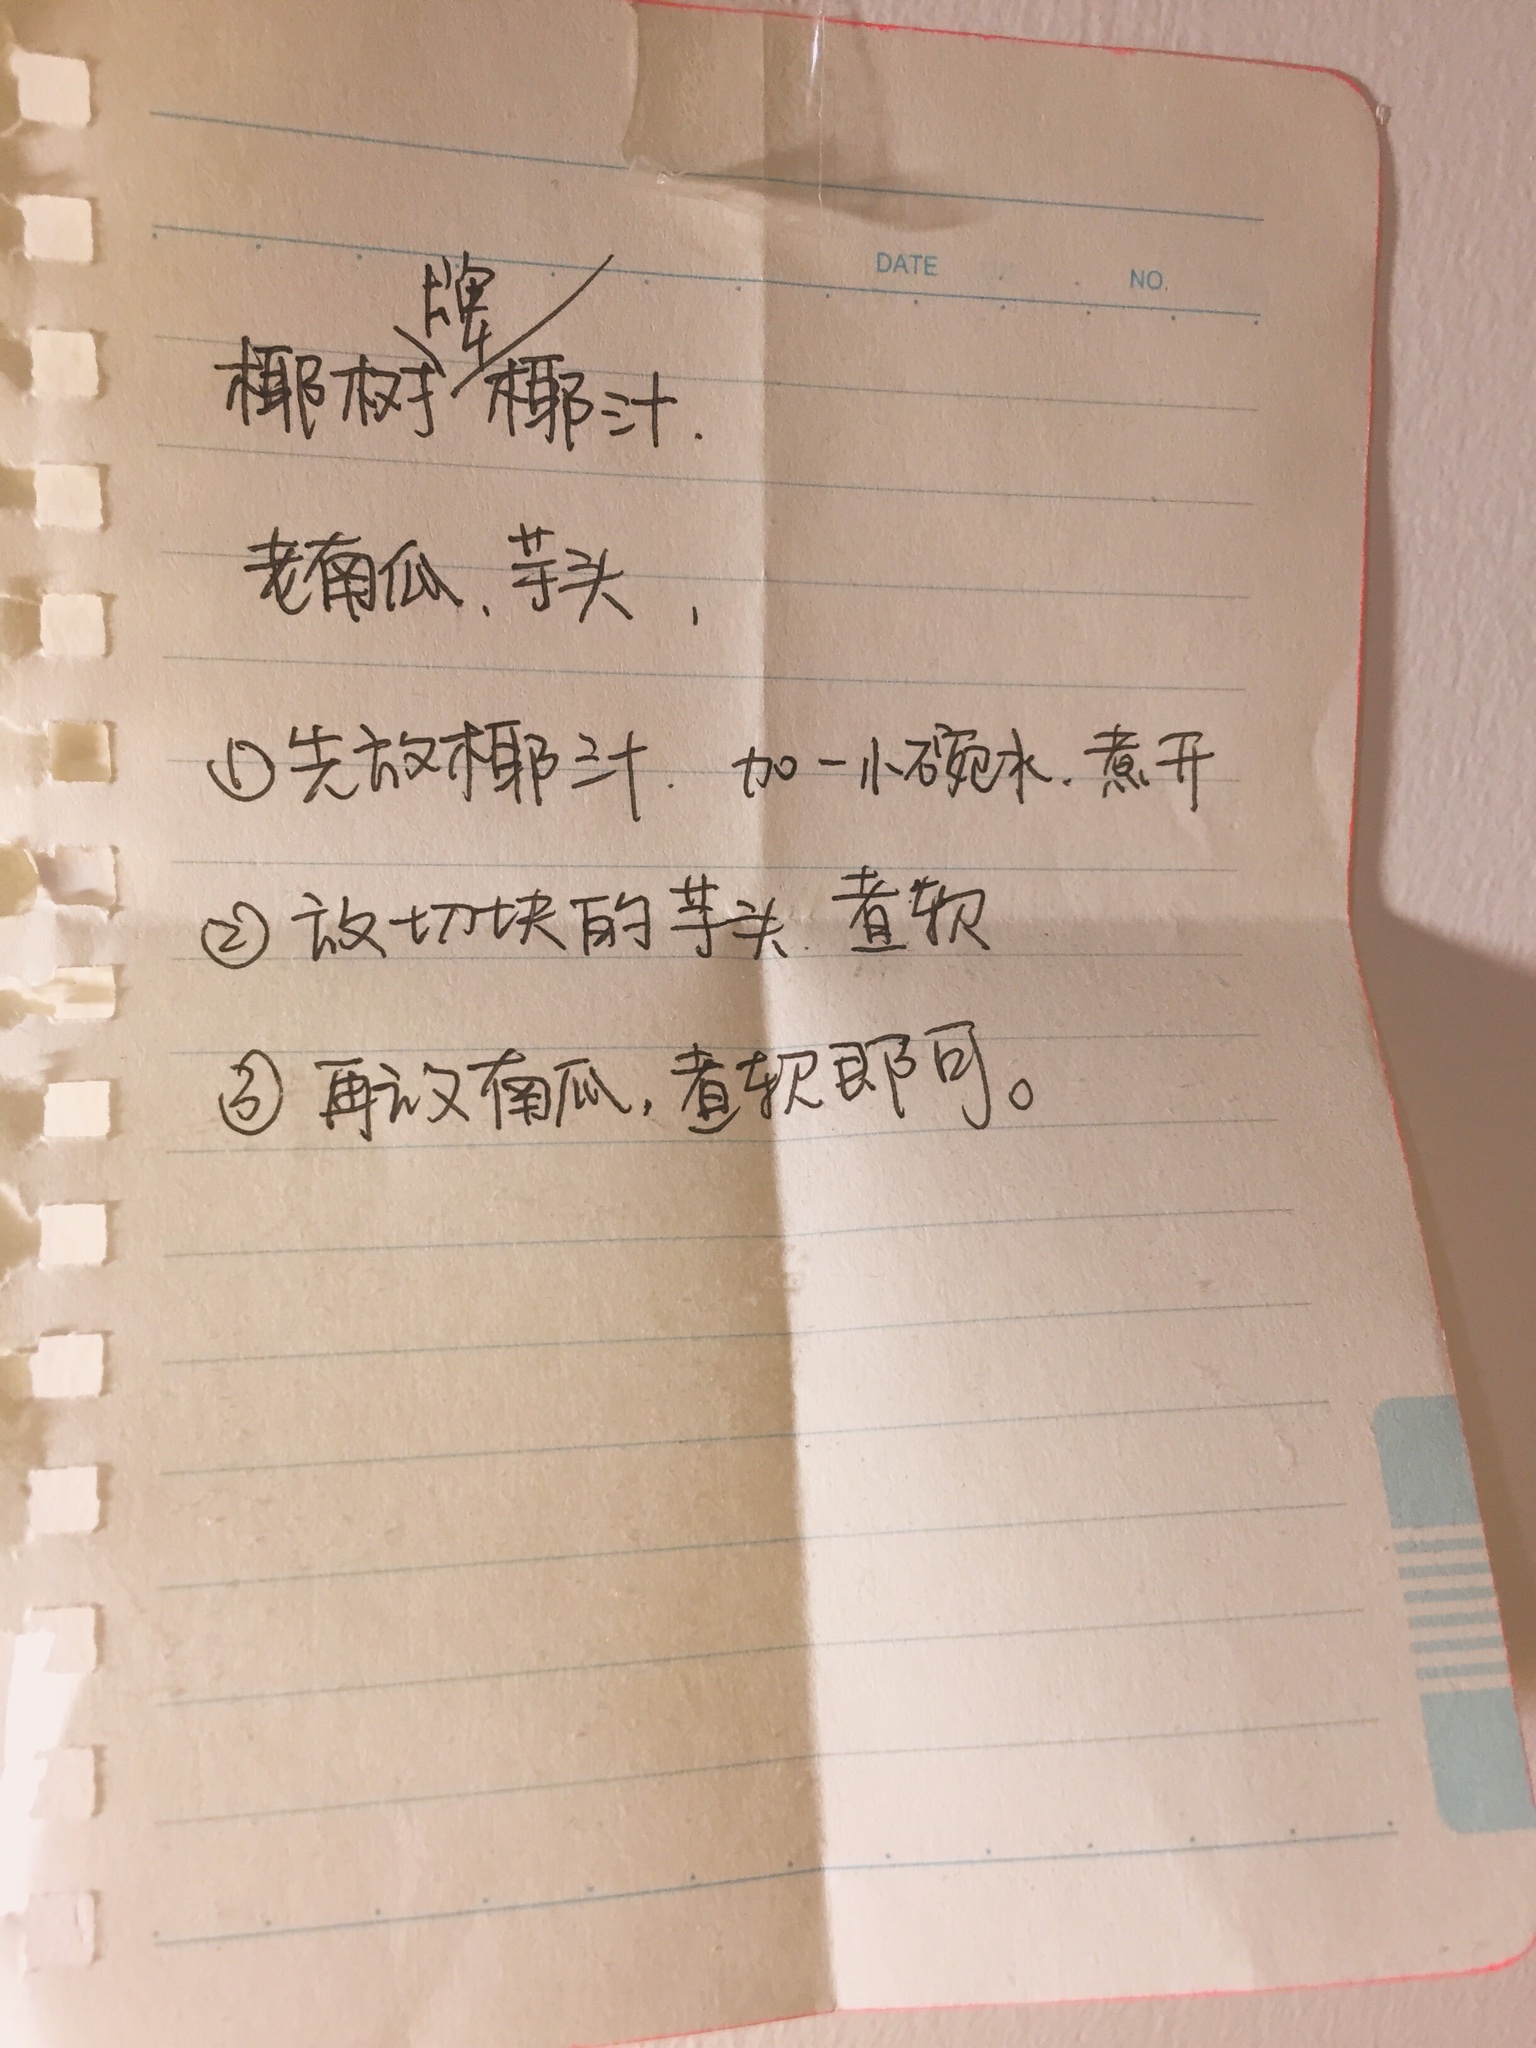 DATE NO.
椰树牌椰汁.
老南瓜、芋头,
①先放椰汁. 加一小碗水.煮开
②放切块的芋头.煮软
③再放南瓜,煮软即可。